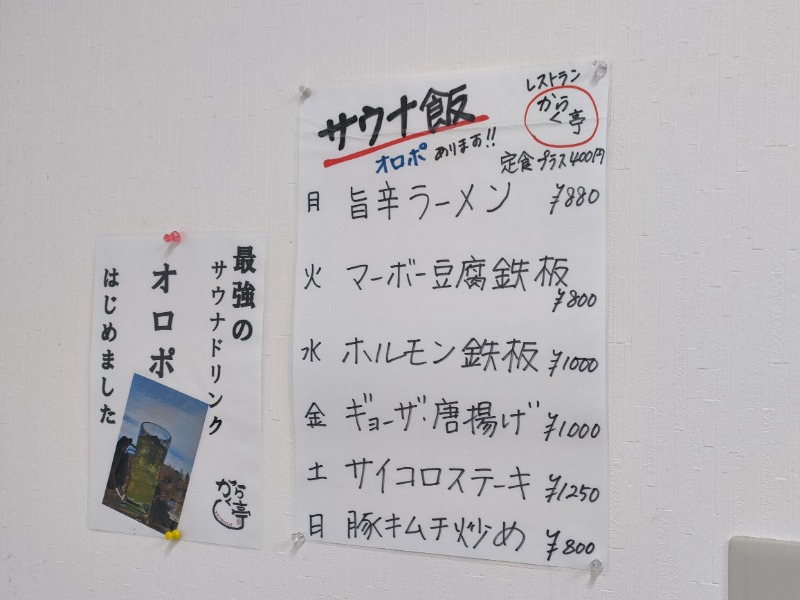 サウナ飯
オロポ あります!!
レストラン
からく亭
定食プラス400円
月 旨辛ラーメン ¥880
火 マーボー豆腐鉄板 ¥800
水 ホルモン鉄板 ¥1000
金 ギョーザ・唐揚げ ¥1000
土 サイコロステーキ ¥1250
日 豚キムチ炒め ¥800
最強の
サウナドリンク
オロポ
はじめました
からく亭